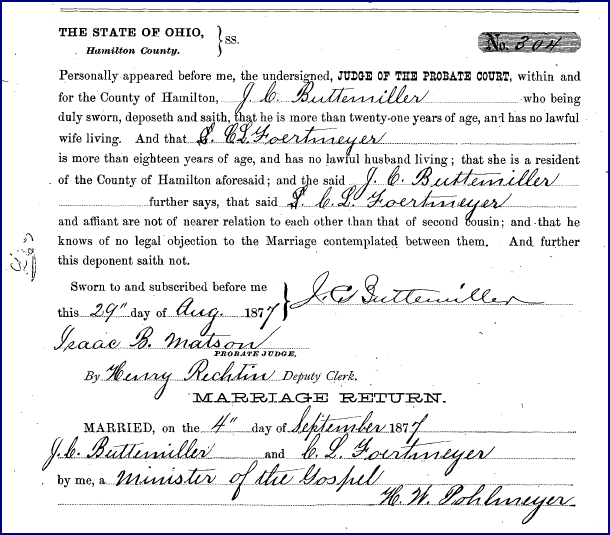 THE STATE OF OHIO, } SS.
Hamilton County.
No. 304
Personally appeared before me, the undersigned, JUDGE OF THE PROBATE COURT, within and
for the County of Hamilton, J. C. Buttemiller who being
duly sworn, deposeth and saith, that he is more than twenty-one years of age, and has no lawful
wife living. And that C L Foertmeyer
is more than eighteen years of age, and has no lawful husband living; that she is a resident
of the County of Hamilton aforesaid; and the said J. C. Buttemiller
further says, that said C. L. Foertmeyer
and affiant are not of nearer relation to each other than that of second cousin; and that he
knows of no legal objection to the Marriage contemplated between them. And further
this deponent saith not.
Sworn to and subscribed before me
this 29" day of Aug. 1877 } J. C. Buttemiller
Isaac B. Matson
PROBATE JUDGE.
By Henry Rechtin Deputy Clerk.
MARRIAGE RETURN.
MARRIED, on the 4" day of September 1877
J. C. Buttemiller and C. L. Foertmeyer
by me, a Minister of the Gospel
H. W. Pohlmeyer